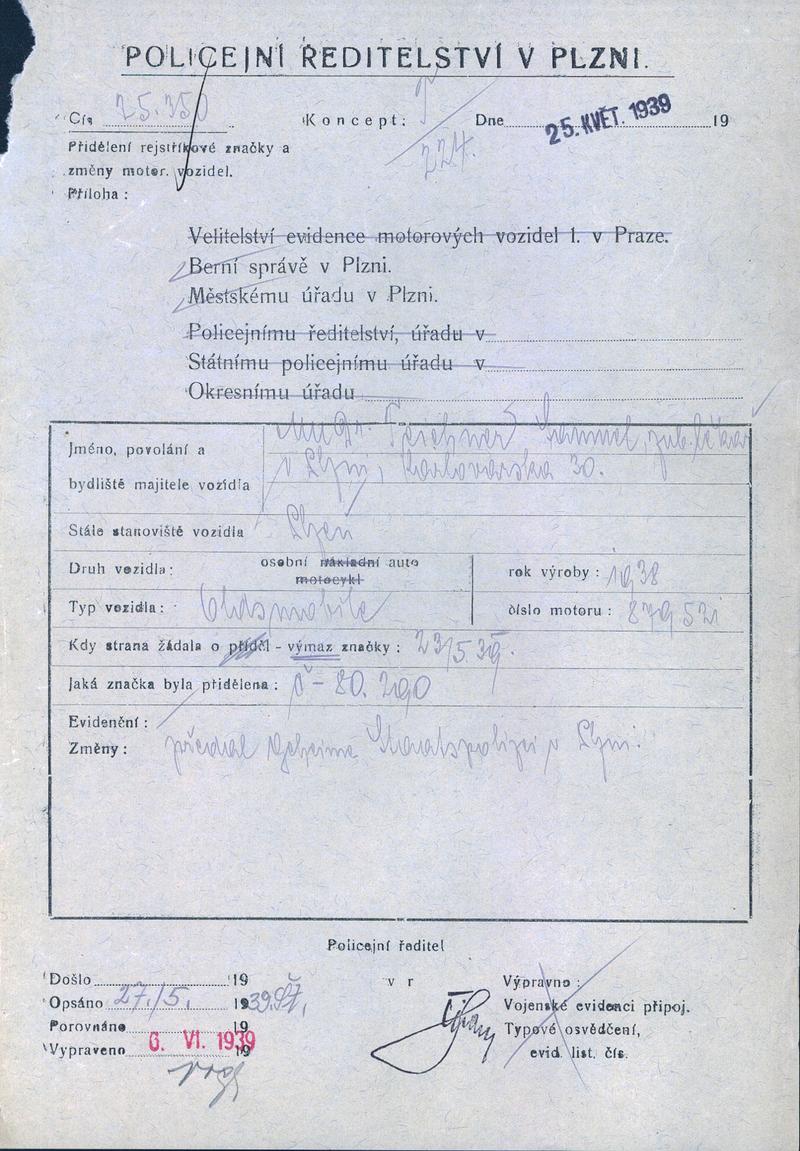 POLICEJNÍ ŘEDITELSTVÍ V PLZNI.
Čís 25.350 Koncept: Dne 25. KVĚT. 1939 19
224.
Přidělení rejstříkové značky a
změny motor. vozidel.
Příloha :
Velitelství evidence motorových vozidel 1. v Praze.
Berní správě v Plzni.
Městskému úřadu v Plzni.
Policejnímu ředitelství, úřadu v
Státnímu policejnímu úřadu v
Okresnímu úřadu
Jméno, povolání a
bydliště majitele vozidla
MUDr. Teichner Samuel, zub. lékař
v Plzni, Karlovarska 30.
Stále stanoviště vozidla Plzeň
Druh vozidla: osobní nákladní auto
motocykl
rok výroby : 1938
Typ vozidla: Oldsmobile číslo motoru : 879.521
Kdy strana žádala o příděl - výmaz značky : 23/5.39.
Jaká značka byla přidělena : Č - 80.290
Evidenční :
Změny : předal Geheime Staatspolizei v Plzni.
Policejní ředitel
Došlo 19
v r
Výpravno :
Opsáno 27./5. 1939
Vojenské evidenci připoj.
Porovnáno 19
Typové osvědčení,
Vypraveno 6. VI. 1939 19
evid. list. čís.